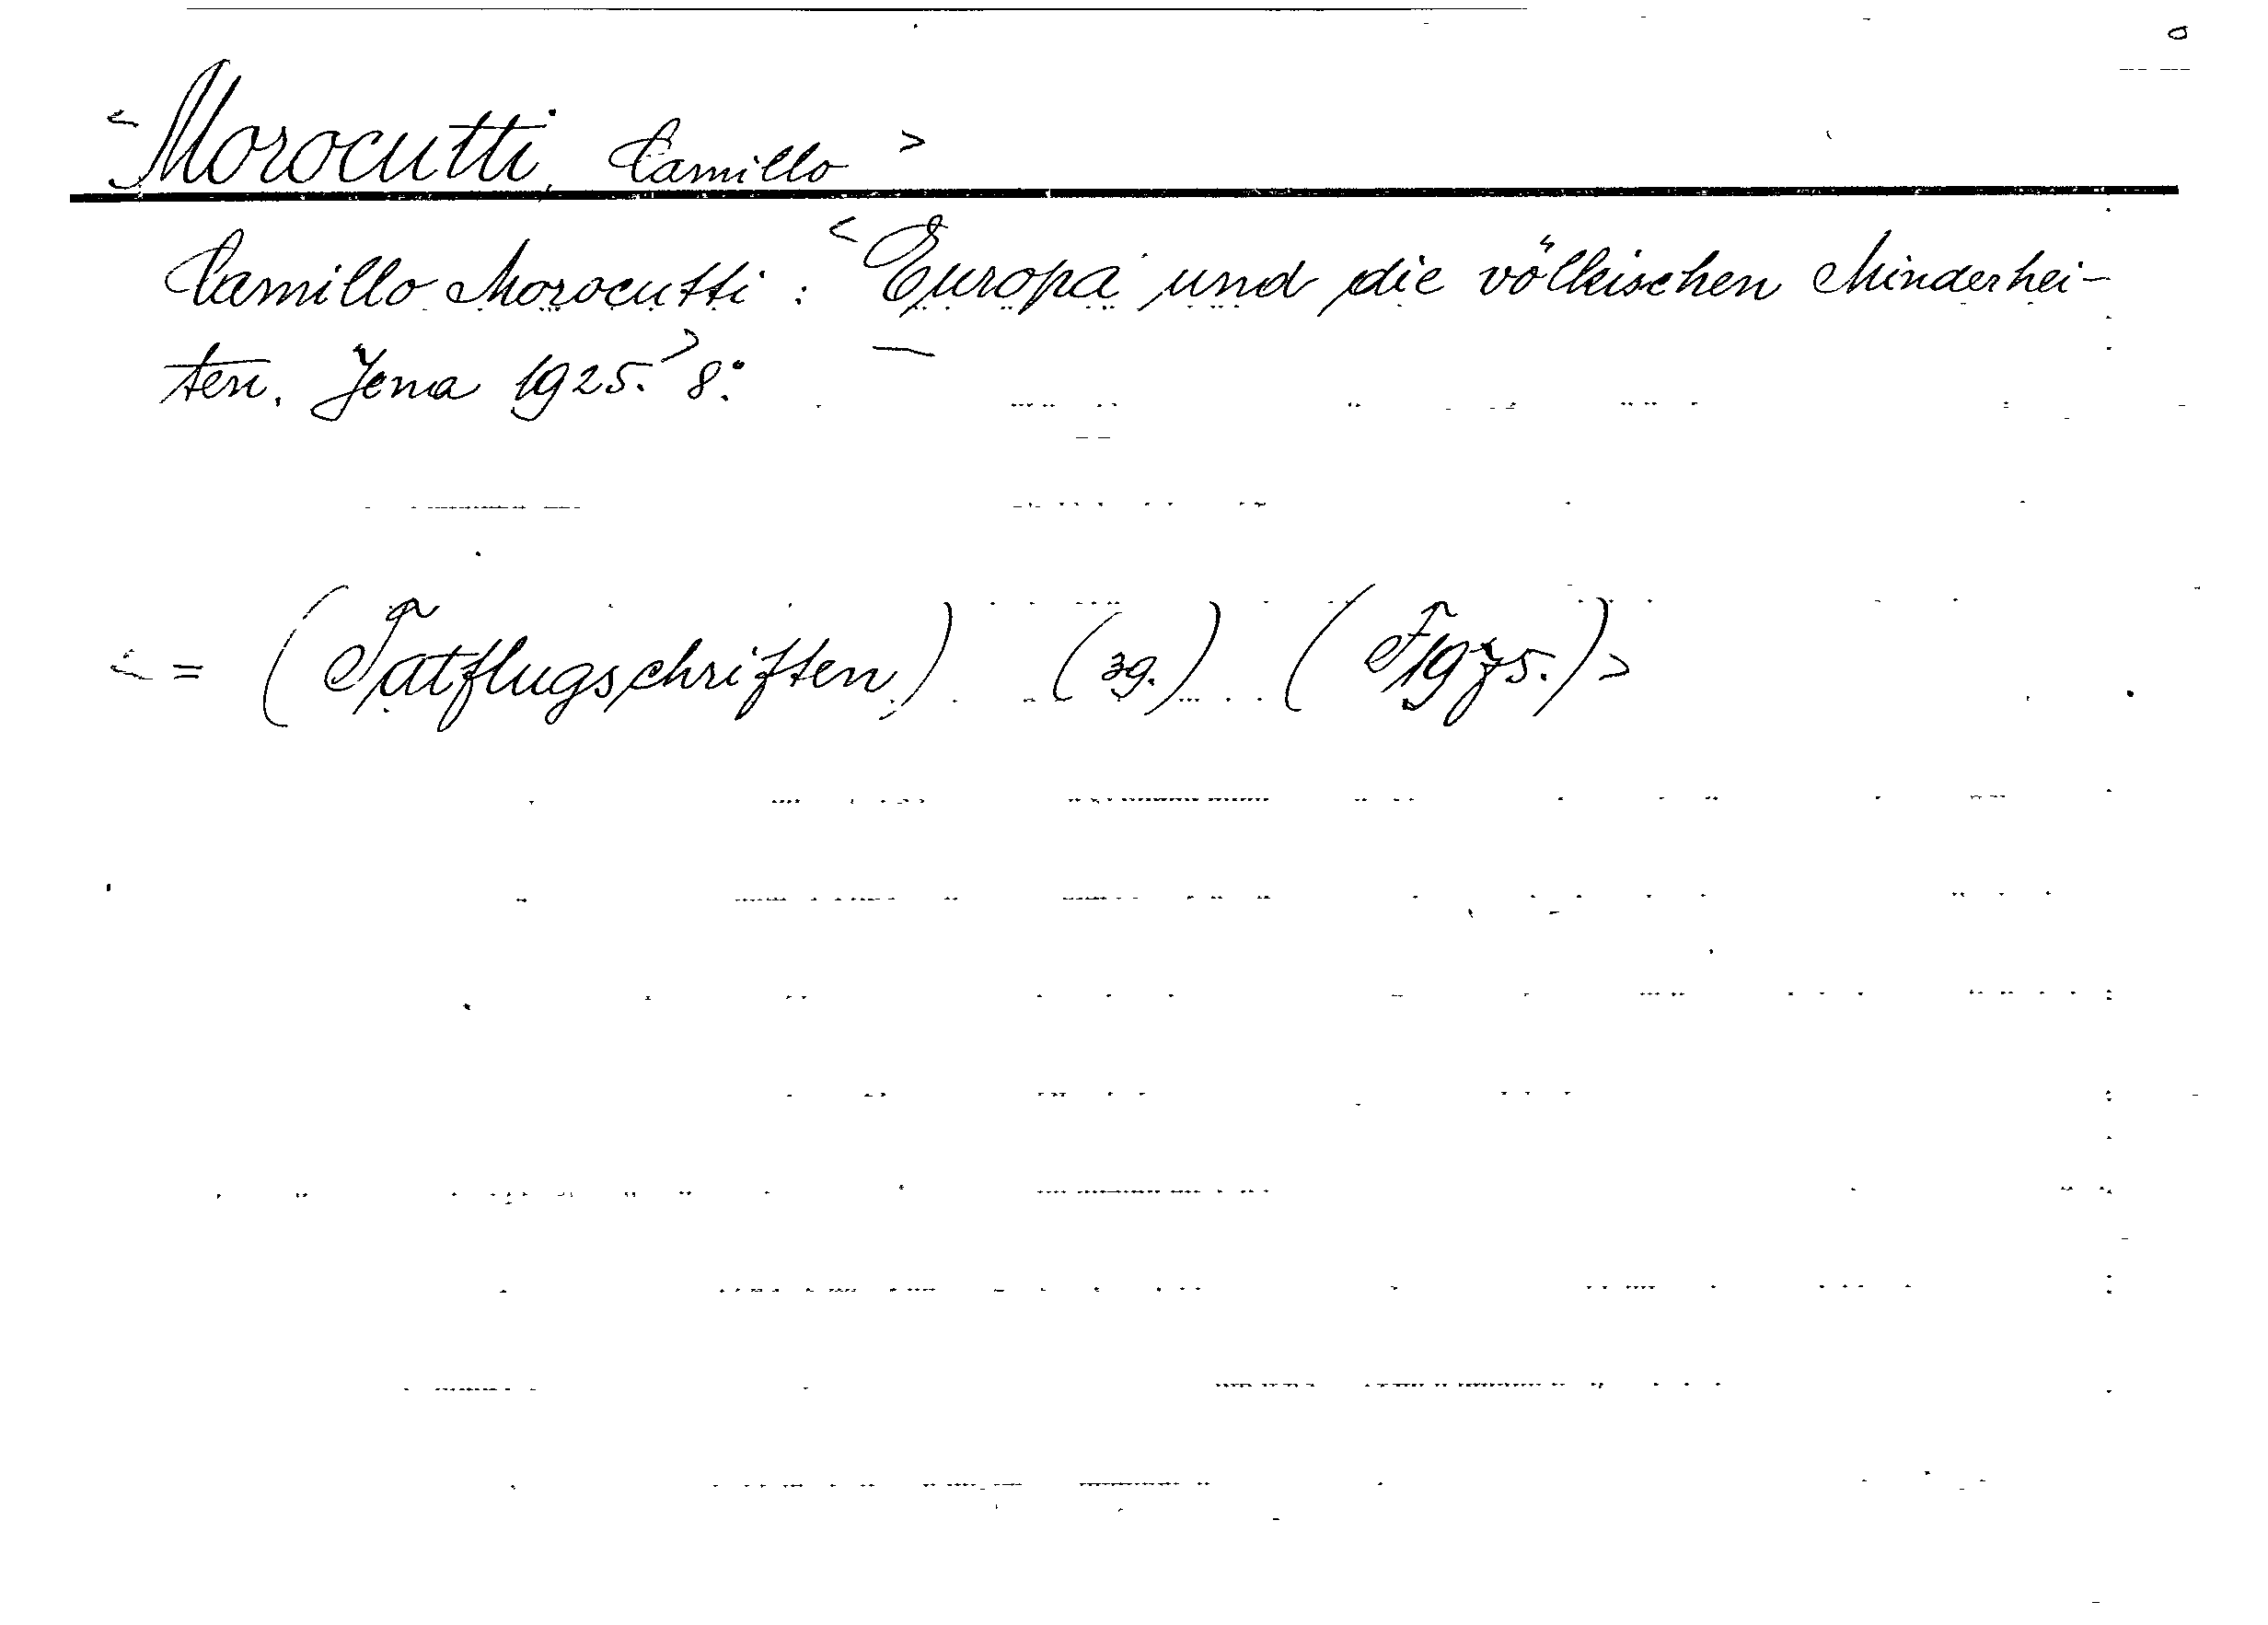 <Morocutti, Camillo>
Camillo Morocutti: <Europa und die völkischen Minderhei-
ten. Jena 1925.> 8°.
<= (Tatflugschriften) (39.) (F 1975.)>